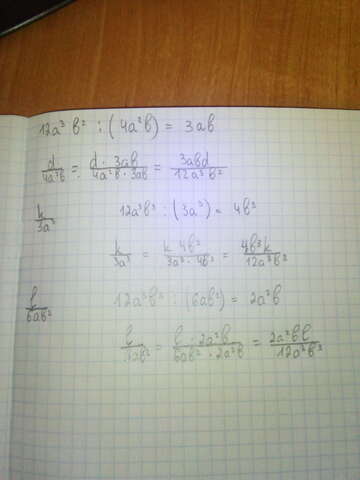 12a³ b² : (4a²b) = 3ab
d/4a²b = d · 3ab/4a²b · 3ab = 3abd/12a³ b²
k/3a³ 12a³b² : (3a³) = 4b²
k/3a³ = k 4b²/3a³ · 4b² = 4b²k/12a³b²
l/6ab² 12a³b² : (6ab²) = 2a²b
l/6ab² = l · 2a²b/6ab² · 2a²b = 2a²bl/12a³b³